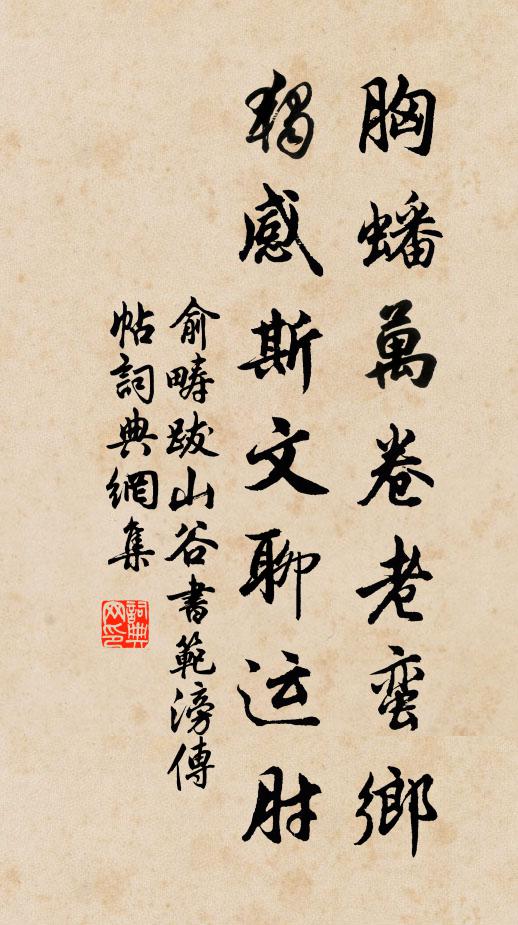 胸蟠萬卷老蛮鄉
獨感斯文聊运肘
俞畴跋山谷書範滂傳
帖詞典網集
詞典网印